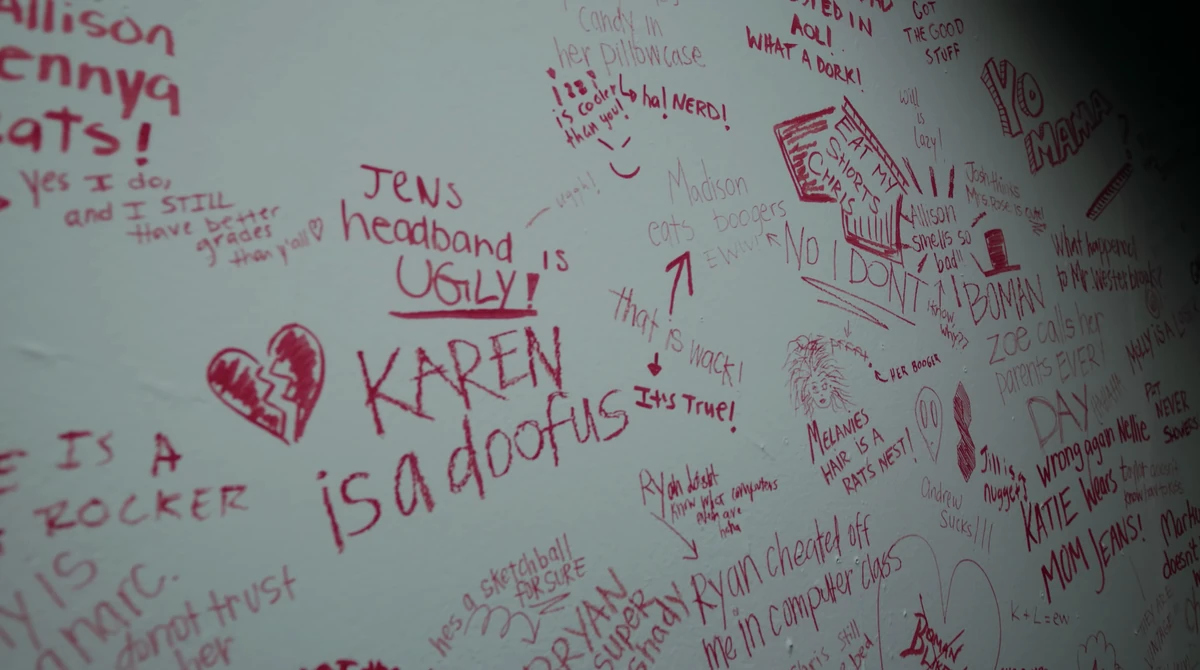 Allison
ennya
ats!
Yes I do,
and I STILL
Have better
grades
than y'all
JENS
headband
IS
UGLY!
KAREN
is a doofus
IS A
ROCKER
IS
a narc.
do not trust
her
candy in
her pillowcase
is cooler
than you!
ha! NERD!
ughh!
IN
AOL!
WHAT A DORK!
GOT
THE GOOD
STUFF
YO
MAMA
Will
is
lazy!
EAT MY
SHORTS
CHRIS
Madison
eats boogers
EWWW
NO I DONT
Allison
smells so
bad"
I know,
why??
Josh thinks
Mrs. Rose is cute!
What happened
to Mr. Westerbrook?
BOMAN
ZOE calls her
parents EVERY
DAY
MOLLY IS A
that is wack!
It's True!
HER BOOGER
MELANIES
HAIR IS A
RATS NEST!
Jill is
nuggets
Andrew
Sucks!!!
Wrong again Nellie
PAT
NEVER
KATIE Wears
MOM JEANS!
Ryan doesnt
know what computers
even are
haha
Ryan cheated off
me in computer class
hes a sketchball
FOR SURE
RYAN
SUPER
Shady
Chris still
bed
BOMAN
K + L = ew